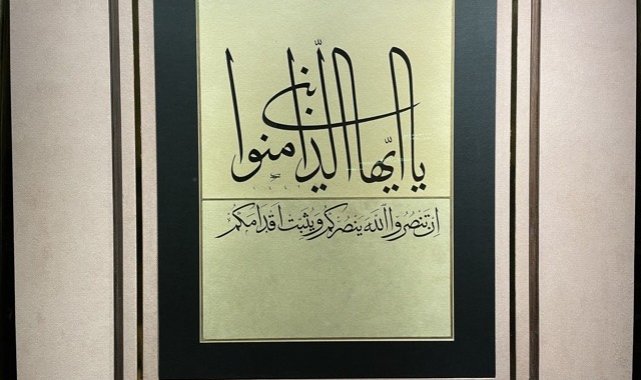 يا ايّها الّذين آمنوا
ان تنصروا الله ينصركم ويثبت اقدامكم